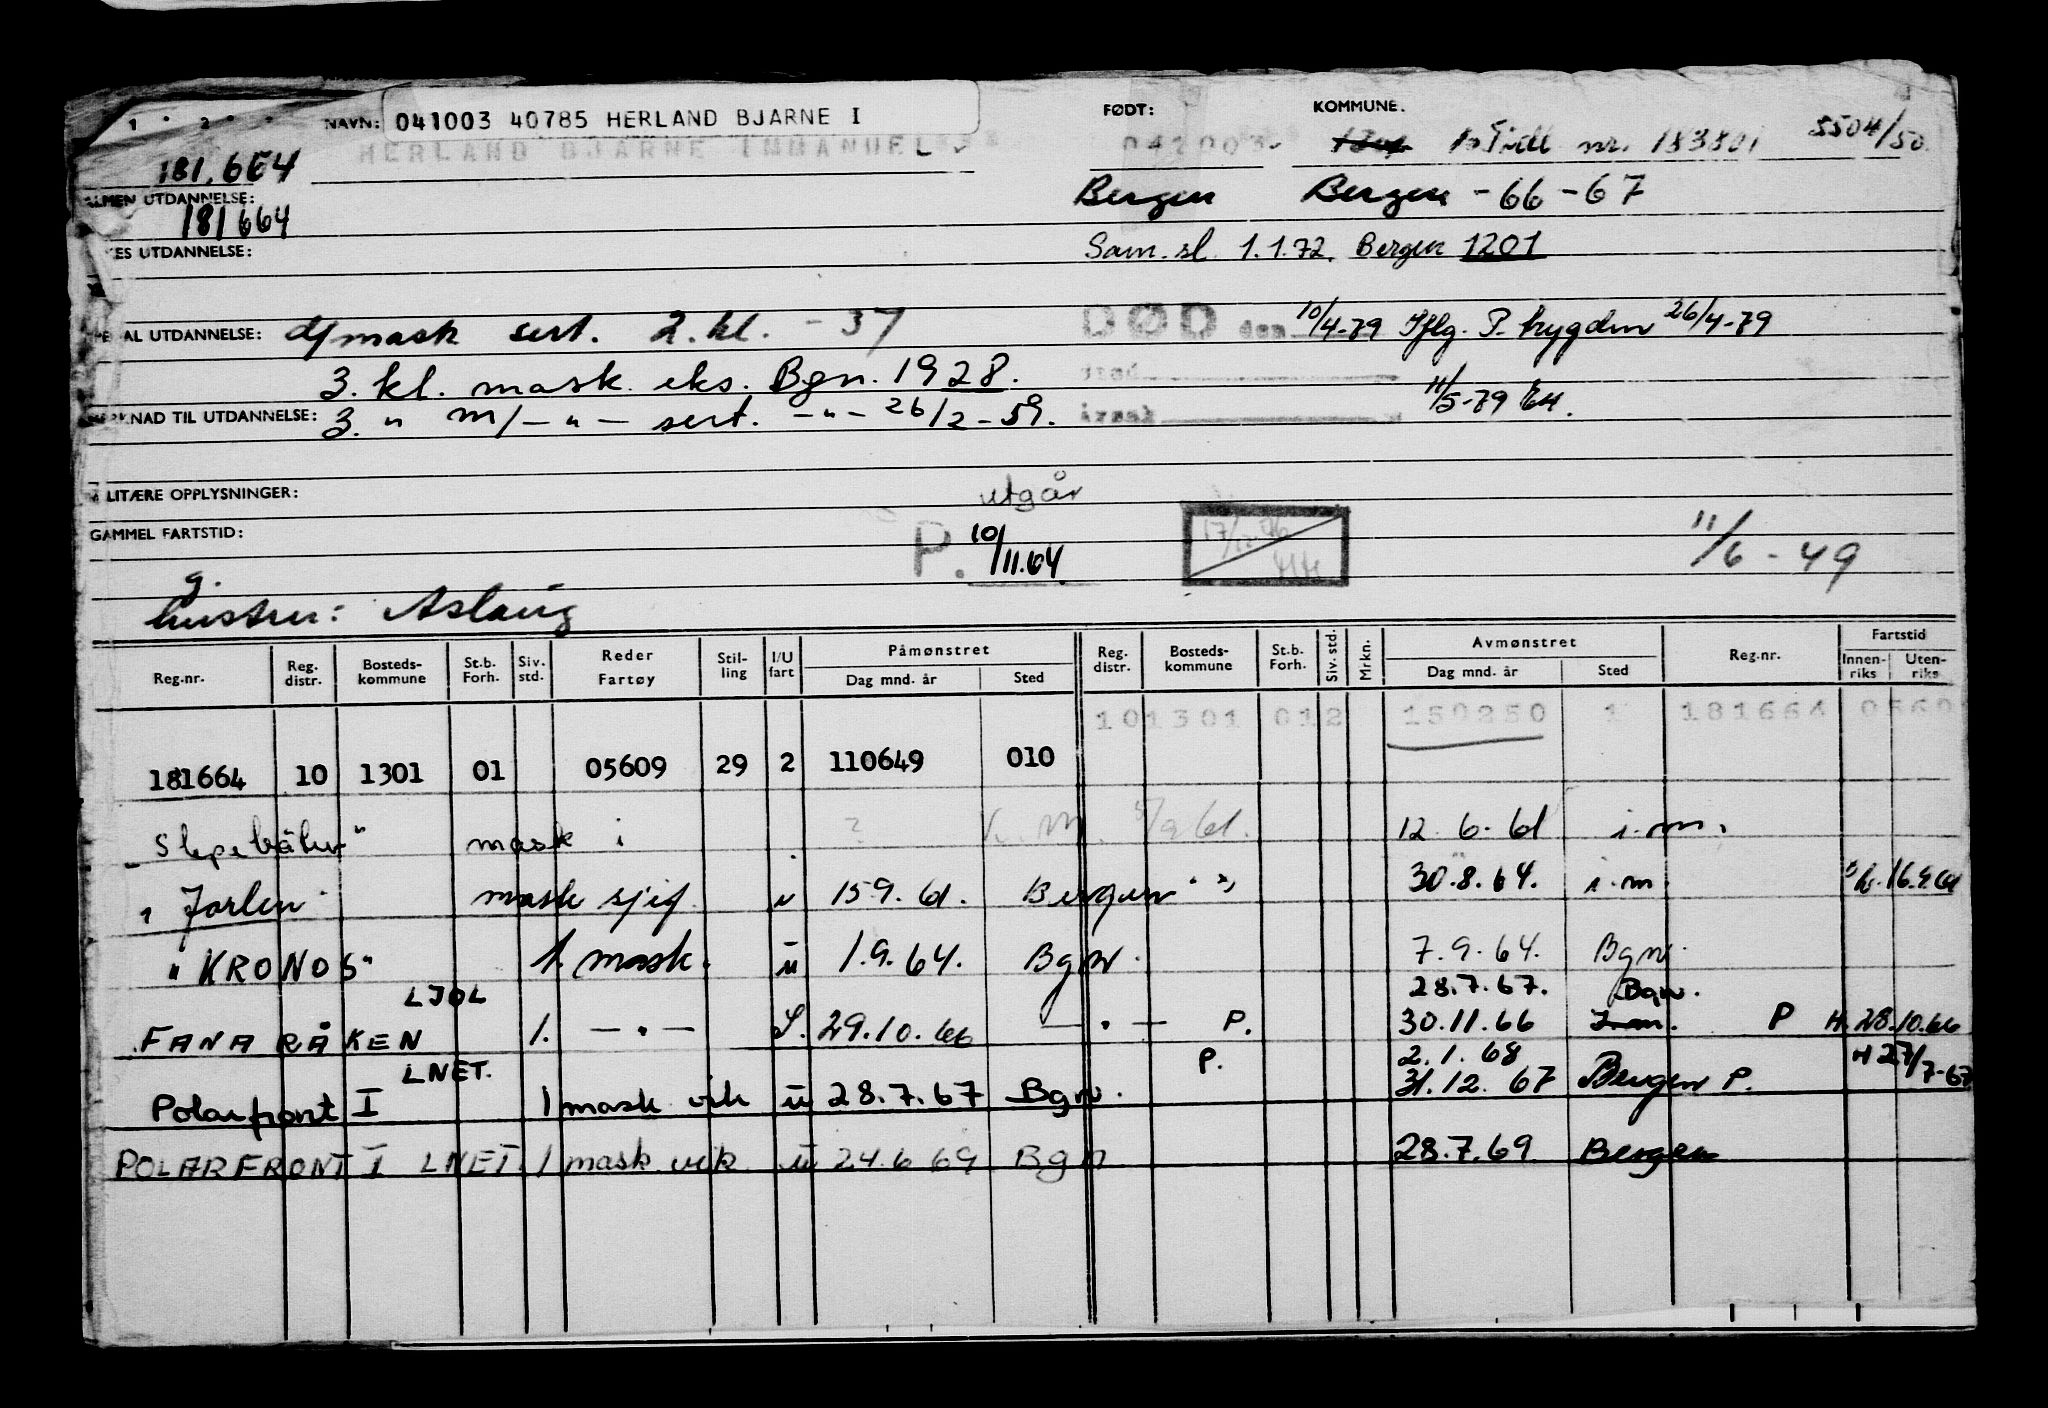 1 * 2 * * NAVN: 041003 40785 HERLAND BJARNE I FØDT: KOMMUNE.
HERLAND BJARNE IMMANUEL 041003 nr. 183801 5504/50
181.664
ALMEN UTDANNELSE: Bergen Bergen - 66 - 67
181664
ES UTDANNELSE: Sam. sl. 1.1.72. Bergen 1201
AL UTDANNELSE: mask sert. 2. kl. - 37 DØD den 10/4-79 Iflg. P. trygden 26/4-79
3. kl. mask. eks. Bgn. 1928. 11/5-79
KNAD TIL UTDANNELSE: 3. " m/ - " - sert. - " - 26/2 - 59.
LITÆRE OPPLYSNINGER: utgår
GAMMEL FARTSTID: P. 10/11.64 11/6 - 49
g.
hustru: Aslaug
Reg.nr. Reg. distr. Bosteds-kommune St.b. Forh. Siv. std. Reder Fartøy Stil-ling I/U fart Påmønstret Dag mnd. år Sted Reg. distr. Bosteds-kommune St.b. Forh. Siv. std. Mrkn. Avmønstret Dag mnd. år Sted Reg.nr. Fartstid Innen-riks Uten-riks
101301 012 150250 1 181664 0560
181664 10 1301 01 05609 29 2 110649 010
mask i ? 12.6.61 i.m.
" Jorlin mask sjef u 15 9. 61. Bergen 30.8.64. i.m. 16.9.64
"KRONOS" 1. mask. u 1.9.64. Bgn. 7.9.64. Bgn.
LJOL 28.7.67. Bgn.
FANARÅKEN 1. - " - S. 29.10.66 - " - P. 30.11.66 I.m. P H 28.10.66
LNET. P. 2.1.68 H 27/7-67
Polarfront I 1 mask vik u 28.7.67 Bgn. 31.12.67 Bergen P.
POLARFRONT I LNET. 1 mask vik u 24.6 69 Bgn 28.7.69. Bergen